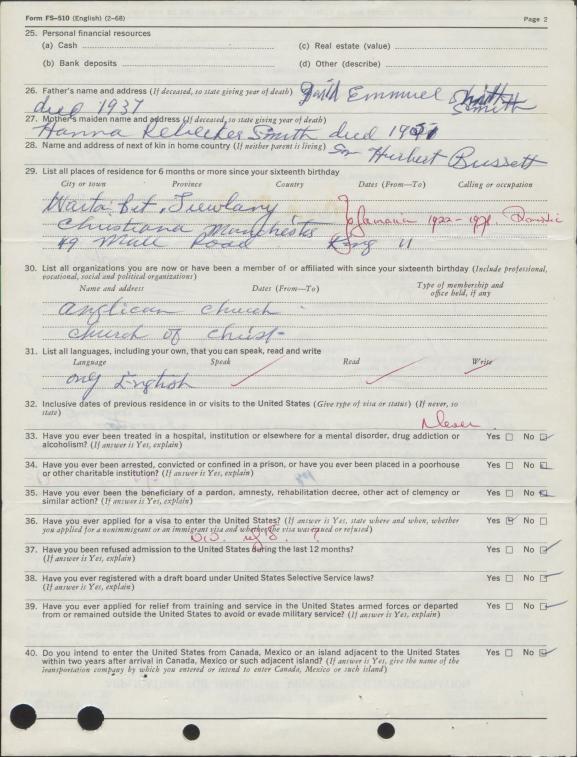 Form FS-510 (English) (2-68)
Page 2
25. Personal financial resources
(a) Cash
(c) Real estate (value)
(b) Bank deposits
(d) Other (describe)
26. Father's name and address (If deceased, so state giving year of death) David Emmuel Smith
Smith
died 1937
27. Mother's maiden name and address (If deceased, so state giving year of death)
Hanna Rebecker Smith died
28. Name and address of next of kin in home country (If neither parent is living) Son Hurbert Bussett
29. List all places of residence for 6 months or more since your sixteenth birthday
City or town Province Country Dates (From—To) Calling or occupation
Waita Bit, Trewlany
Jamaica 1922-1971. Domestic
Christiana Manchester
49 Mall Road King 11
30. List all organizations you are now or have been a member of or affiliated with since your sixteenth birthday (Include professional,
vocational, social and political organizations)
Name and address Dates (From—To) Type of membership and
office held, if any
Anglican church
church of christ
31. List all languages, including your own, that you can speak, read and write
Language Speak Read Write
ony English
32. Inclusive dates of previous residence in or visits to the United States (Give type of visa or status) (If never, so
state)
Never
33. Have you ever been treated in a hospital, institution or elsewhere for a mental disorder, drug addiction or
alcoholism? (If answer is Yes, explain)
Yes No
34. Have you ever been arrested, convicted or confined in a prison, or have you ever been placed in a poorhouse
or other charitable institution? (If answer is Yes, explain)
Yes No
35. Have you ever been the beneficiary of a pardon, amnesty, rehabilitation decree, other act of clemency or
similar action? (If answer is Yes, explain)
Yes No
36. Have you ever applied for a visa to enter the United States? (If answer is Yes, state where and when, whether
you applied for a nonimmigrant or an immigrant visa and whether the visa was issued or refused)
Yes No
37. Have you been refused admission to the United States during the last 12 months?
(If answer is Yes, explain)
Yes No
38. Have you ever registered with a draft board under United States Selective Service laws?
(If answer is Yes, explain)
Yes No
39. Have you ever applied for relief from training and service in the United States armed forces or departed
from or remained outside the United States to avoid or evade military service? (If answer is Yes, explain)
Yes No
40. Do you intend to enter the United States from Canada, Mexico or an island adjacent to the United States
within two years after arrival in Canada, Mexico or such adjacent island? (If answer is Yes, give the name of the
transportation company by which you entered or intend to enter Canada, Mexico or such island)
Yes No